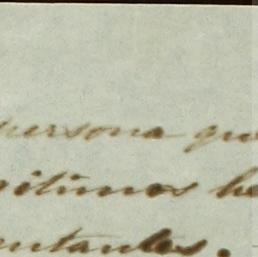 persona que
gitimos he
entantes.